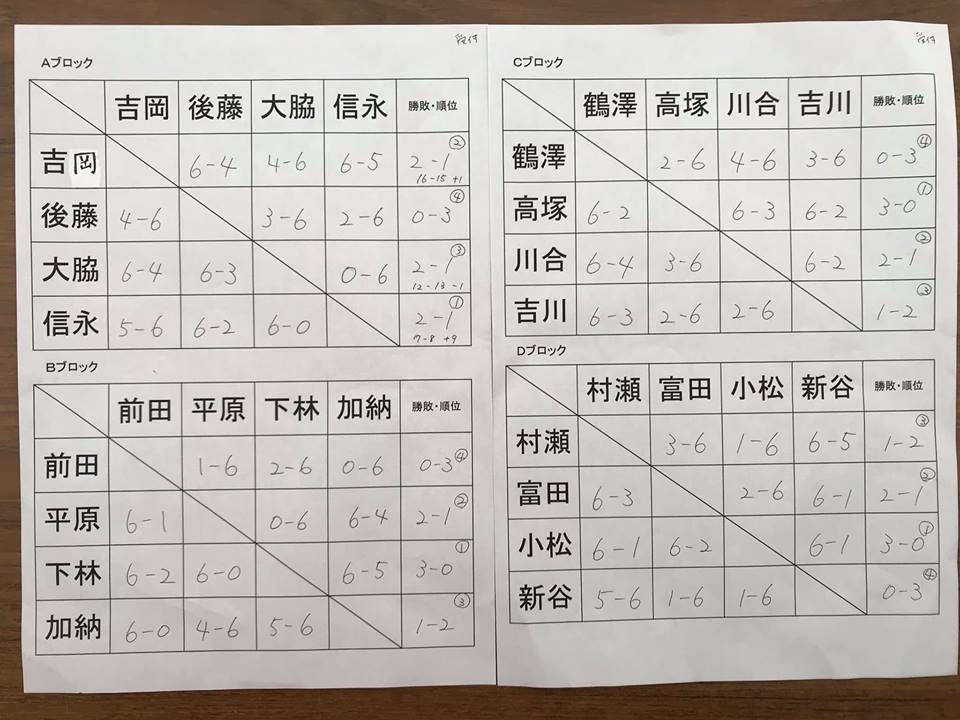 受付
Aブロック
吉岡 後藤 大脇 信永 勝敗・順位
吉岡 6-4 4-6 6-5 2-1 ②
16-15 +1
後藤 4-6 3-6 2-6 0-3 ④
大脇 6-4 6-3 0-6 2-1 ③
12-13 -1
信永 5-6 6-2 6-0 2-1 ①
7-8 +9
Bブロック
前田 平原 下林 加納 勝敗・順位
前田 1-6 2-6 0-6 0-3 ④
平原 6-1 0-6 6-4 2-1 ②
下林 6-2 6-0 6-5 3-0 ①
加納 6-0 4-6 5-6 1-2 ③
受付
Cブロック
鶴澤 高塚 川合 吉川 勝敗・順位
鶴澤 2-6 4-6 3-6 0-3 ④
高塚 6-2 6-3 6-2 3-0 ①
川合 6-4 3-6 6-2 2-1 ②
吉川 6-3 2-6 2-6 1-2 ③
Dブロック
村瀬 富田 小松 新谷 勝敗・順位
村瀬 3-6 1-6 6-5 1-2 ③
富田 6-3 2-6 6-1 2-1 ②
小松 6-1 6-2 6-1 3-0 ①
新谷 5-6 1-6 1-6 0-3 ④